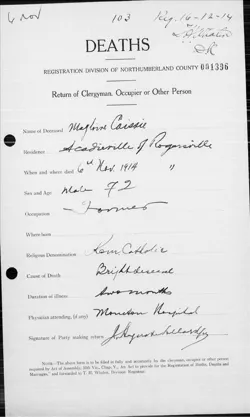 6 Nov 103 Reg. 16-12-14
DEATHS
REGISTRATION DIVISION OF NORTHUMBERLAND COUNTY 001396
Return of Clergyman, Occupier or Other Person
Name of Deceased Maglorie Caissie
Residence Acadieville of Rogersville
When and where died 6th Nov. 1914 "
Sex and Age Male 72
Occupation Farmer
Where born
Religious Denomination Rom Catholic
Cause of Death Bright deseas
Duration of illness two months
Physician attending, (if any) Moncton Hospital
Signature of Party making return
NOTE:—The above form is to be filled in fully and accurately by the clergyman, occupier or other person
required by Act of Assembly,